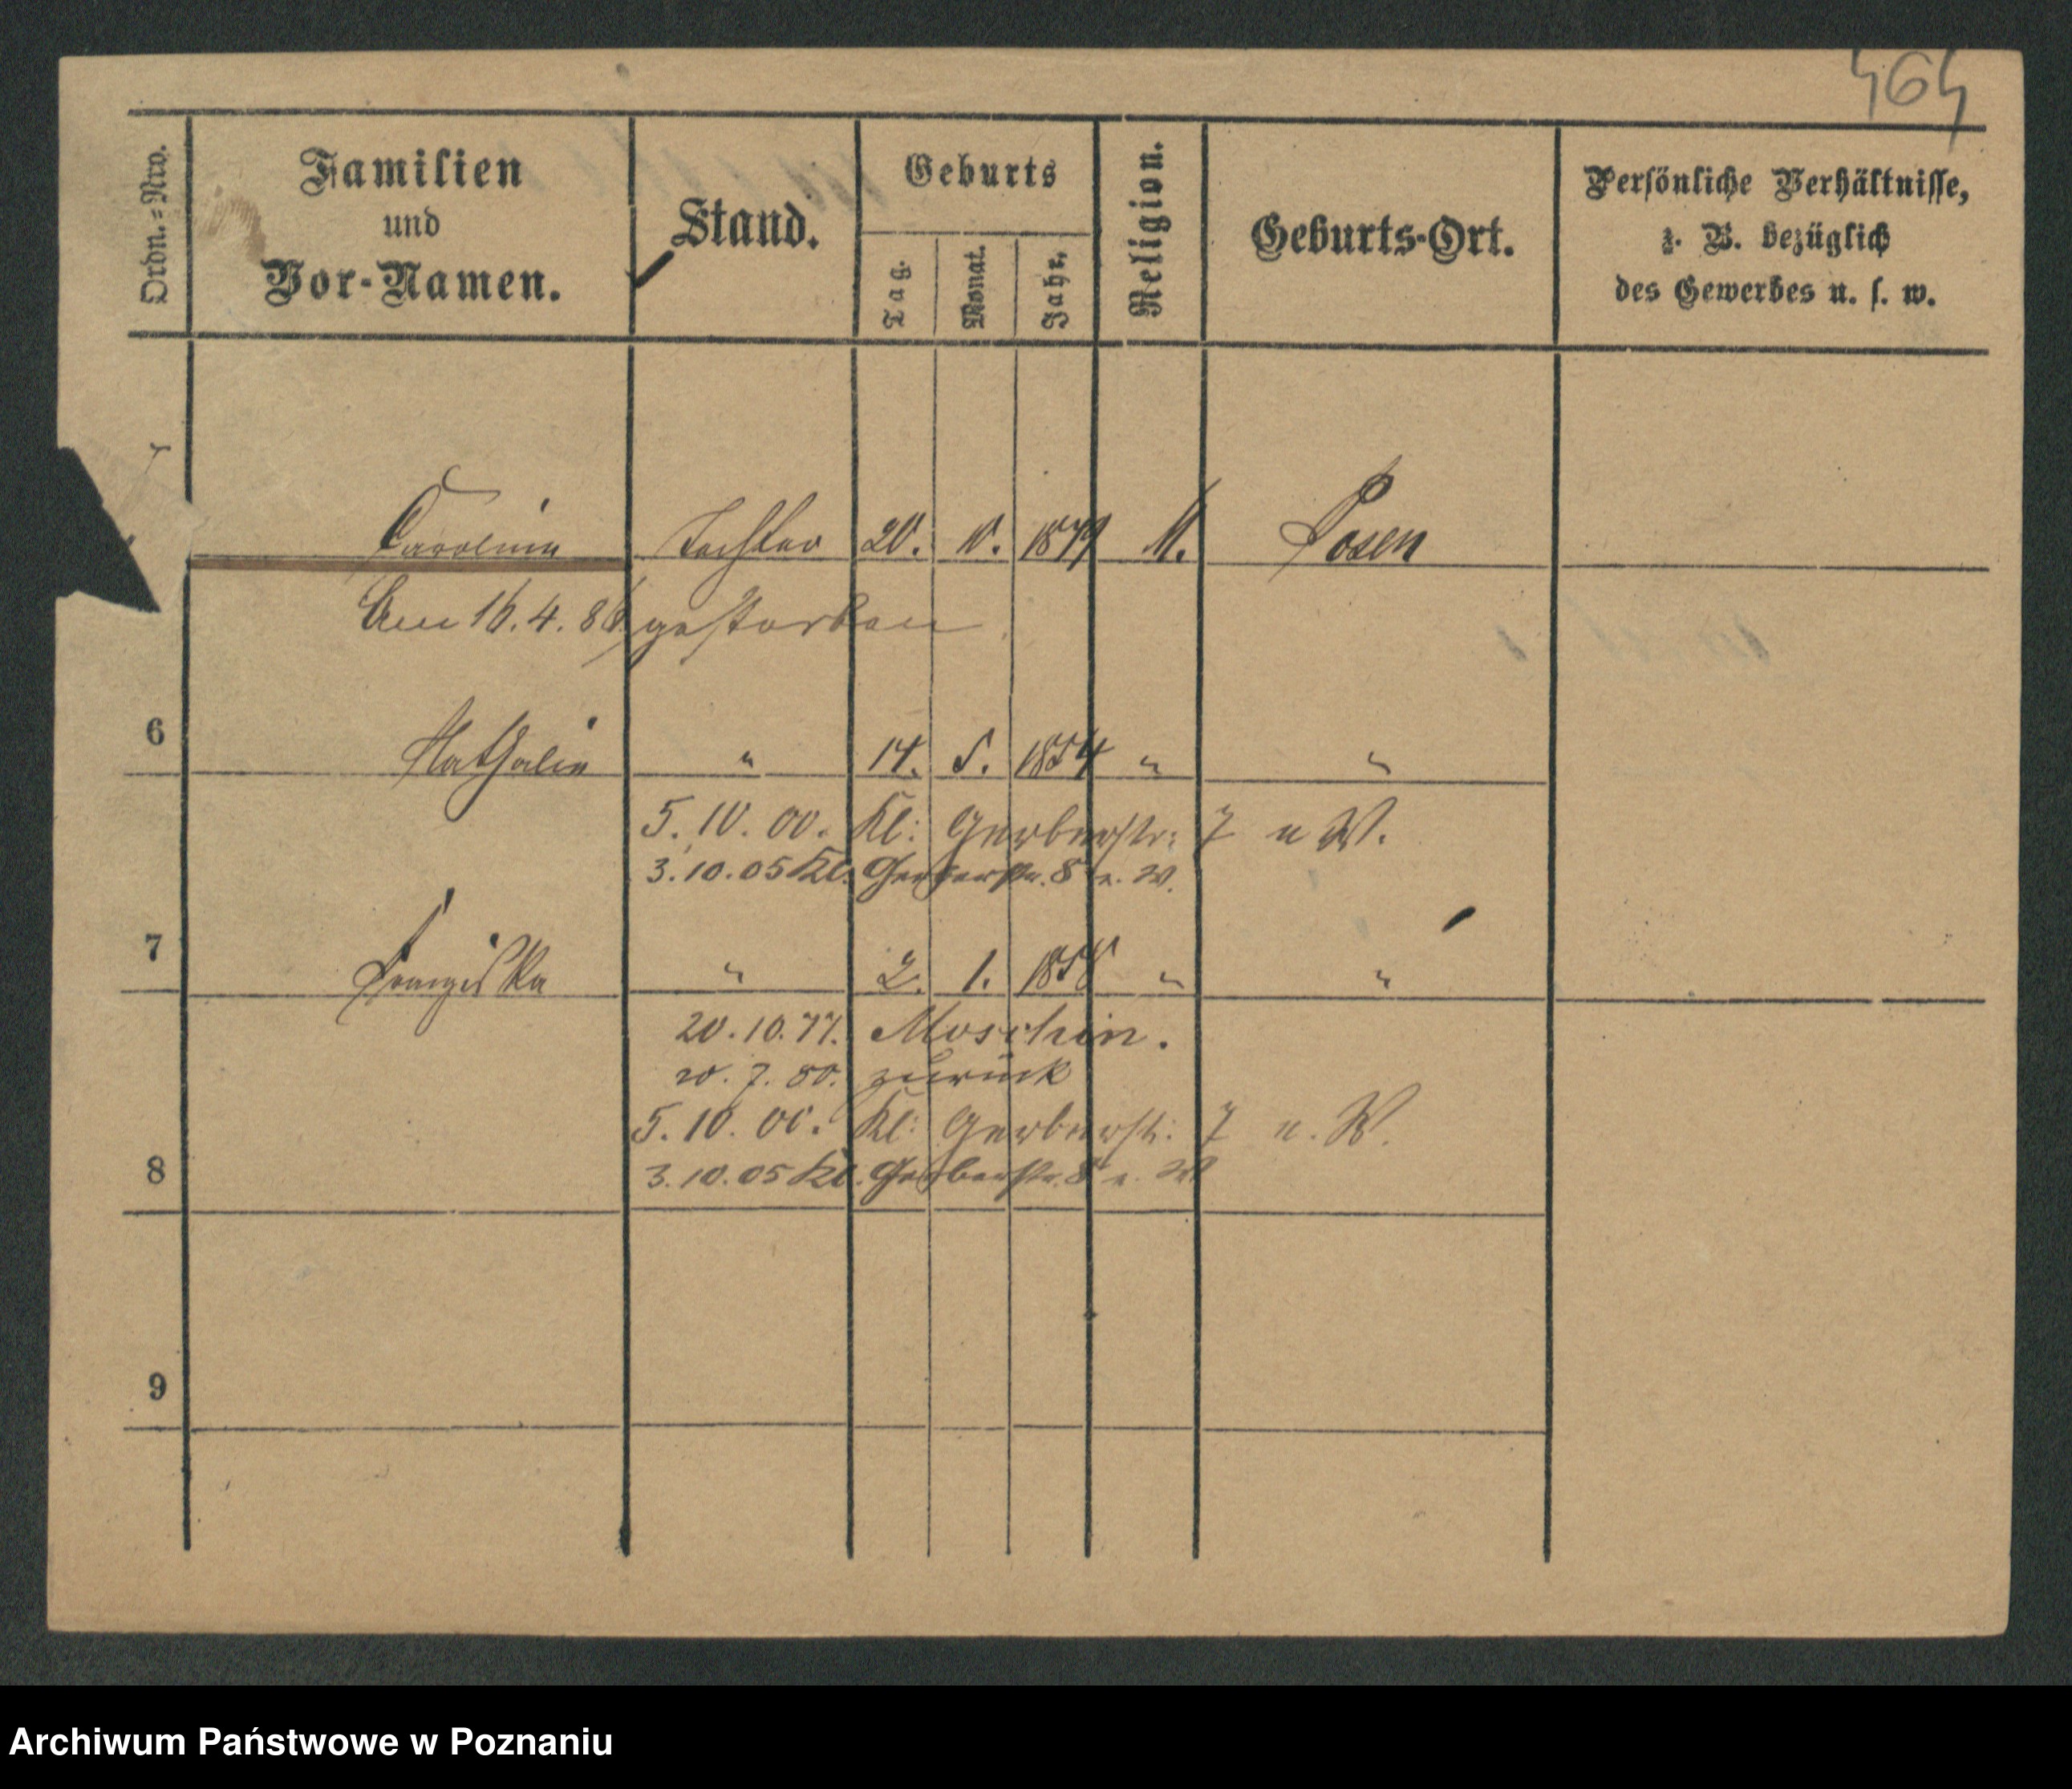 464
Ordn.=Nro.
Familien
und
Vor-Namen.
Stand.
Geburts
Tag.
Monat.
Jahr.
Religion.
Geburts-Ort.
Persönliche Verhältnisse,
z. B. bezüglich
des Gewerbes u. s. w.
Carolina Tochter 20. 10. M. Posen
Am 16.4.86 gestorben
6 Nathalia " 14. 5. 1854 " "
5. 10. 00. Kl: Gerberstr: 7 u W.
3.10.05 Kl. Gerberstr. 8 u. W.
7 Franziska " 2. 1. 1858 " "
20.10.77. Moschin.
20. 7. 80. zurück
5. 10. 00. Kl: Gerberstr. 7 u. W.
8 3.10.05 Kl. Gerberstr. 8 u. W
9
Archiwum Państwowe w Poznaniu